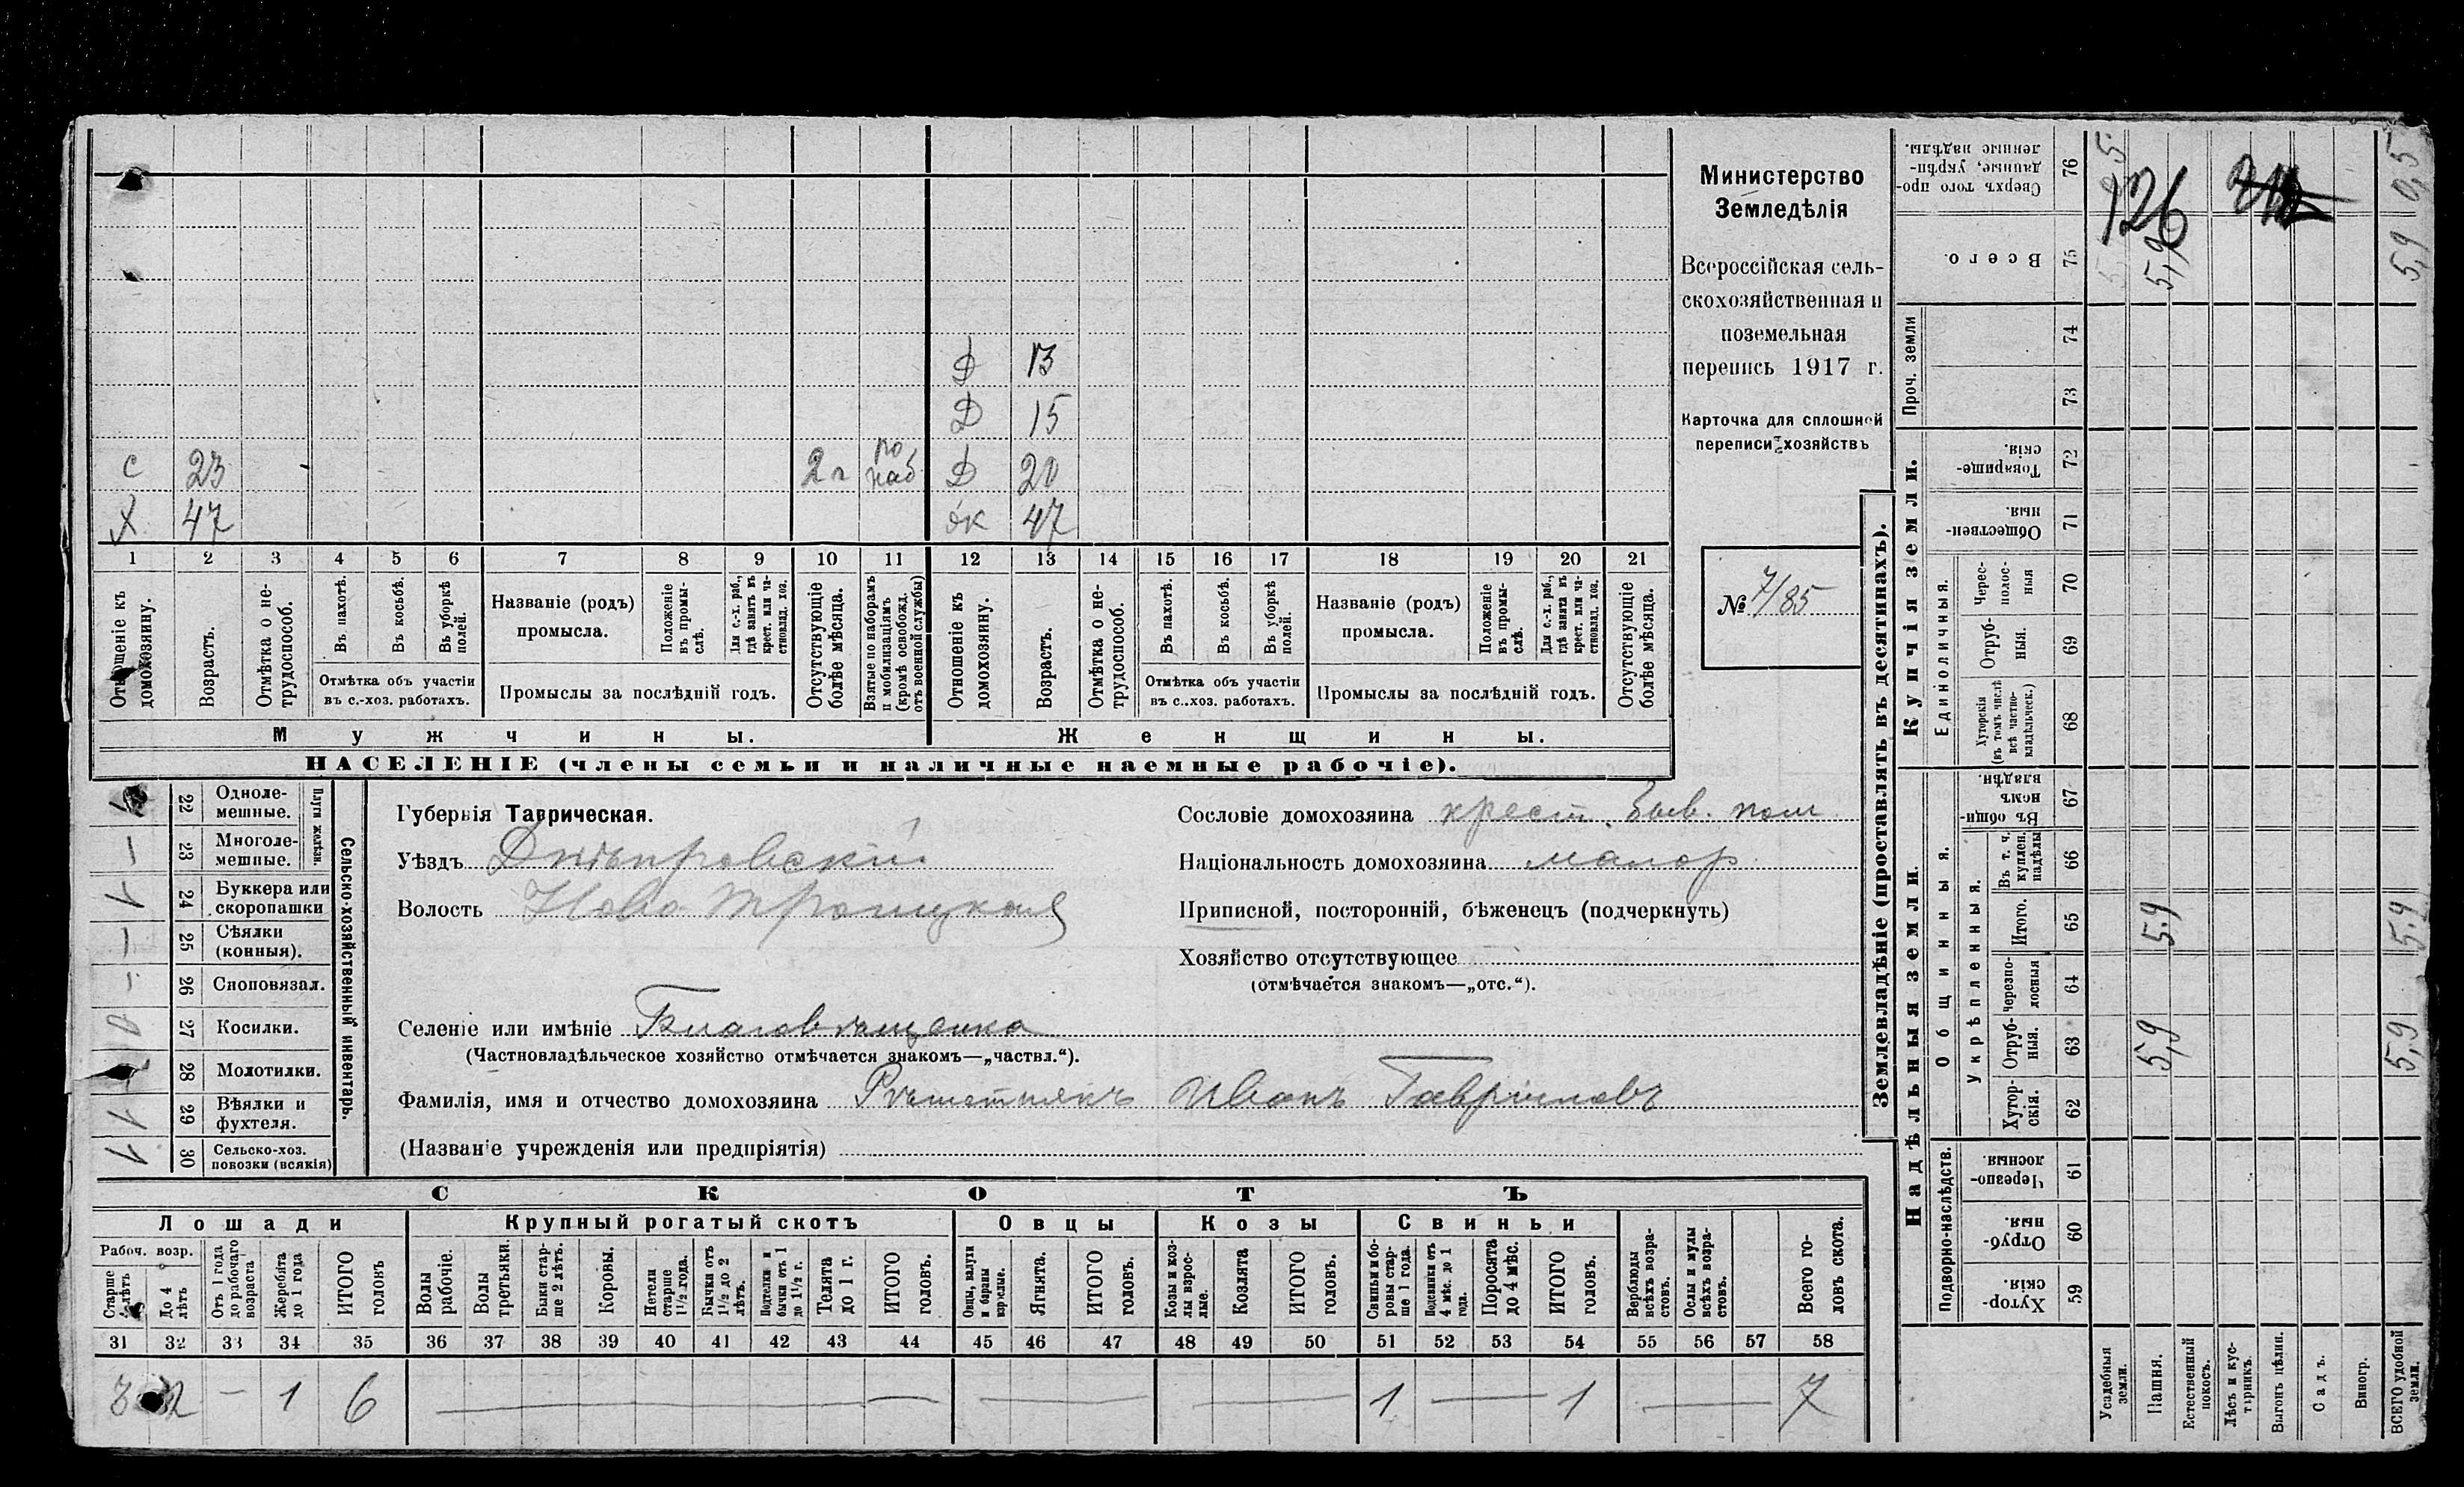 Министерство
Земледѣлія
Всероссійская сель-
скохозяйственная и
поземельная
перепись 1917 г.
Карточка для сплошной
переписи хозяйствъ
№ 7/85
Д 13
Д 15
с 23 2 г по наб Д 20
Х 47 ж 47
1 2 3 4 5 6 7 8 9 10 11 12 13 14 15 16 17 18 19 20 21
Отношеніе къ домохозяину.
Возрастъ.
Отмѣтка о не-трудоспособ.
Въ пахотѣ.
Въ косьбѣ.
Въ уборкѣ полей.
Отмѣтка объ участіи
въ с.-хоз. работахъ.
Названіе (родъ)
промысла.
Положеніе въ промы-слѣ.
Для с.-х. раб., гдѣ занятъ въ крест. или ча-стновлад. хоз.
Промыслы за послѣдній годъ.
Отсутствующіе болѣе мѣсяца.
Взятые по наборамъ и мобилизаціямъ (кромѣ освобожд. отъ военной службы)
Отношеніе къ домохозяину.
Возрастъ.
Отмѣтка о не-трудоспособ.
Въ пахотѣ.
Въ косьбѣ.
Въ уборкѣ полей.
Отмѣтка объ участіи
въ с.-хоз. работахъ.
Названіе (родъ)
промысла.
Положеніе въ промы-слѣ.
Для с.-х. раб., гдѣ занята въ крест. или ча-стновлад. хоз.
Промыслы за послѣдній годъ.
Отсутствующіе болѣе мѣсяца.
Мужчины. Женщины.
НАСЕЛЕНІЕ (члены семьи и наличные наемные рабочіе).
22 Одноле-мешные.
23 Многоле-мешные.
Плуги желѣзн.
24 Буккера или скоропашки
25 Сѣялки (конныя).
26 Сноповязал.
27 Косилки.
28 Молотилки.
29 Вѣялки и фухтеля.
30 Сельско-хоз. повозки (всякія)
Сельско-хозяйственный инвентарь.
Губернія Таврическая.
Уѣздъ Днѣпровскій
Волость Ново Троицкая
Селеніе или имѣніе Благовѣщенка
(Частновладѣльческое хозяйство отмѣчается знакомъ—„частвл.“).
Фамилія, имя и отчество домохозяина Рѣшетнякъ Иванъ Гавриловъ
(Названіе учрежденія или предпріятія)
Сословіе домохозяина крест. быв. пом.
Національность домохозяина малор.
Приписной, посторонній, бѣженецъ (подчеркнуть)
Хозяйство отсутствующее
(отмѣчается знакомъ—„отс.“).
СКОТЪ
Лошади Крупный рогатый скотъ Овцы Козы Свиньи
Рабоч. возр.
Старше 4 лѣтъ
До 4 лѣтъ
Отъ 1 года до рабочаго возраста
Жеребята до 1 года
ИТОГО головъ
Волы рабочіе.
Волы третьяки.
Быки стар-ше 2 лѣтъ.
Коровы.
Нетели старше 1½ года.
Бычки отъ 1½ до 2 лѣтъ.
Подтелки и бычки отъ 1 до 1½ г.
Телята до 1 г.
ИТОГО головъ.
Овцы, валухи и бараны взрослые.
Ягнята.
ИТОГО головъ.
Козы и коз-лы взрос-лые.
Козлята
ИТОГО головъ.
Свиньи и бо-ровы стар-ше 1 года.
Подсвинки отъ 4 мѣс. до 1 года.
Поросята до 4 мѣс.
ИТОГО головъ.
Верблюды всѣхъ возра-стовъ.
Ослы и мулы всѣхъ возра-стовъ.
Всего го-ловъ скота.
31 32 33 34 35 36 37 38 39 40 41 42 43 44 45 46 47 48 49 50 51 52 53 54 55 56 57 58
3 2 — 1 6 — — — — 1 — 1 — 7
Землевладѣніе (проставлять въ десятинахъ).
Купчія земли.
Надѣльныя земли.
Сверхъ того про-данные, укрѣп-ленные надѣлы. 76
Всего. 75
Проч. земли 74 73
Товарище-скія. 72
Обществен-ныя. 71
Единоличныя.
Черес-полос-ныя 70
Отруб-ныя. 69
Хуторскія (въ томъ числѣ всѣ частно-владѣльческ.) 68
Въ общин-номъ владѣн. 67
Общинныя.
Укрѣпленныя.
Въ т. ч. куплен. надѣлы 66
Итого. 65
Черезпо-лосныя 64
Отруб-ныя. 63
Хутор-скія. 62
Подворно-наслѣдств.
Черезпо-лосныя. 61
Отруб-ныя. 60
Хутор-скія. 59
Усадебныя земли.
Пашня.
Естественный покосъ.
Лѣсъ и кус-тарникъ.
Выгонъ цѣлин.
Садъ.
Виногр.
ВСЕГО удобной земли.
126
0,5
5,9 5,9
5,9 5,9
5,9 5,9